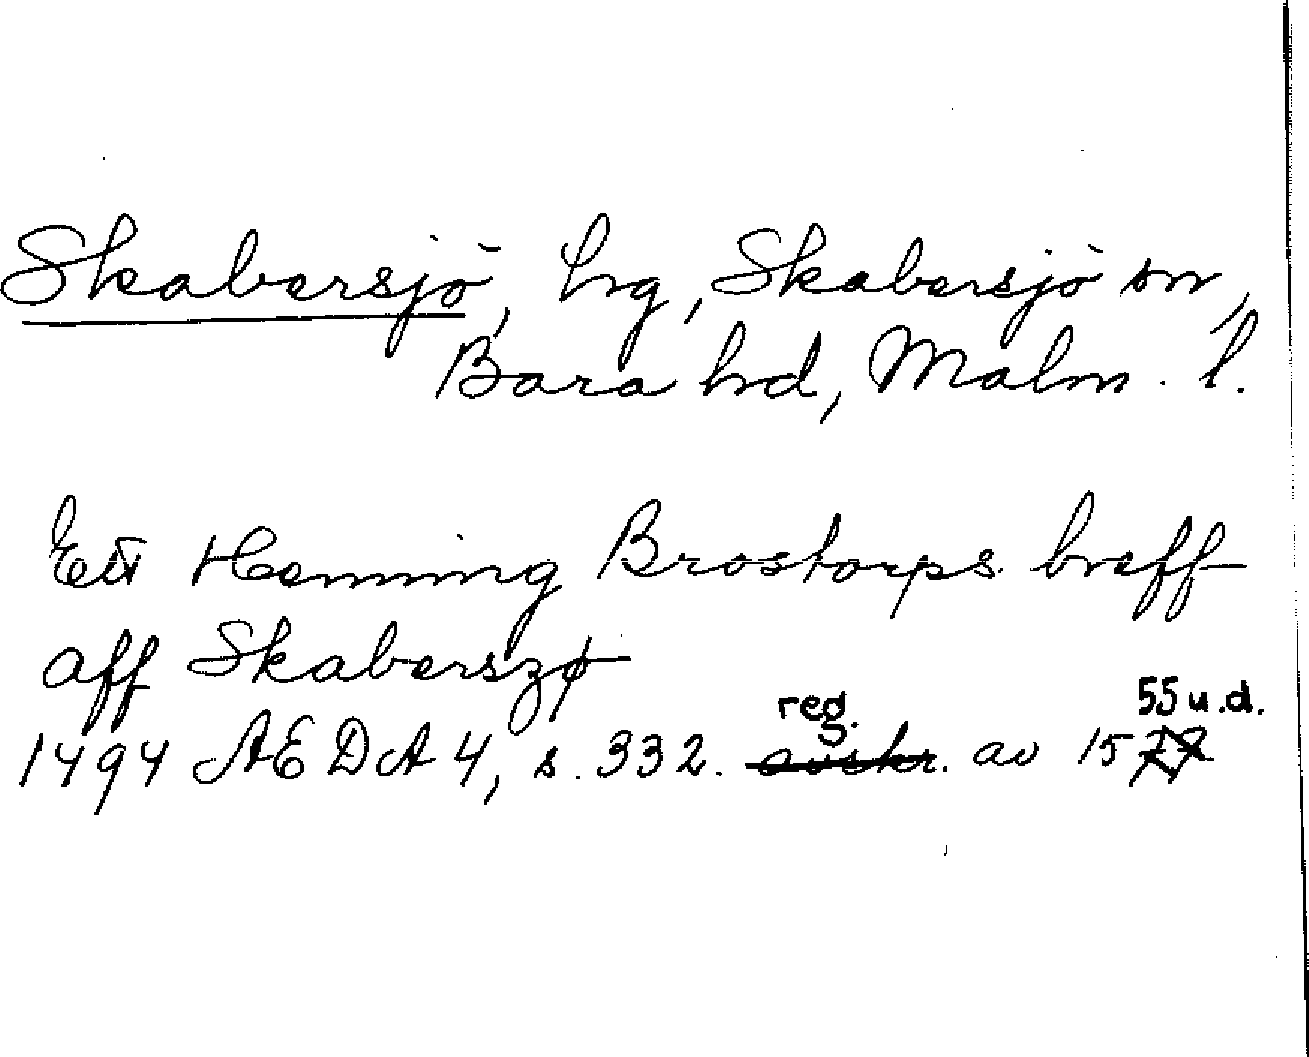 Skabersjö, hrg, Skabersjö sn,
Bara hd, Malm. l.
Ett Henning Brostorps breff
aff Skaberszø
1494 AEDA 4, s. 332. reg. av 1555 u.d.